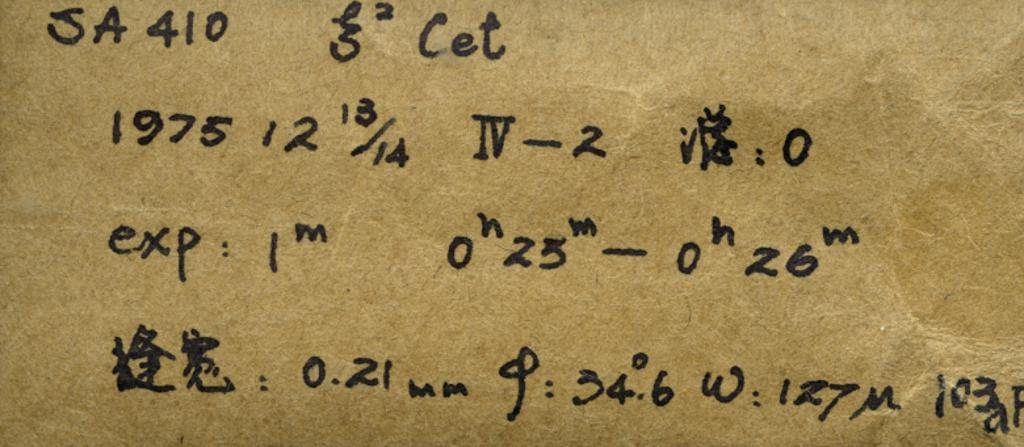 SA 410 ξ² Cet
1975 12 13/14 IV-2 滤: 0
exp: 1ᵐ 0ʰ25ᵐ - 0ʰ26ᵐ
缝宽: 0.21mm φ: 34°.6 W: 127μ 103aF